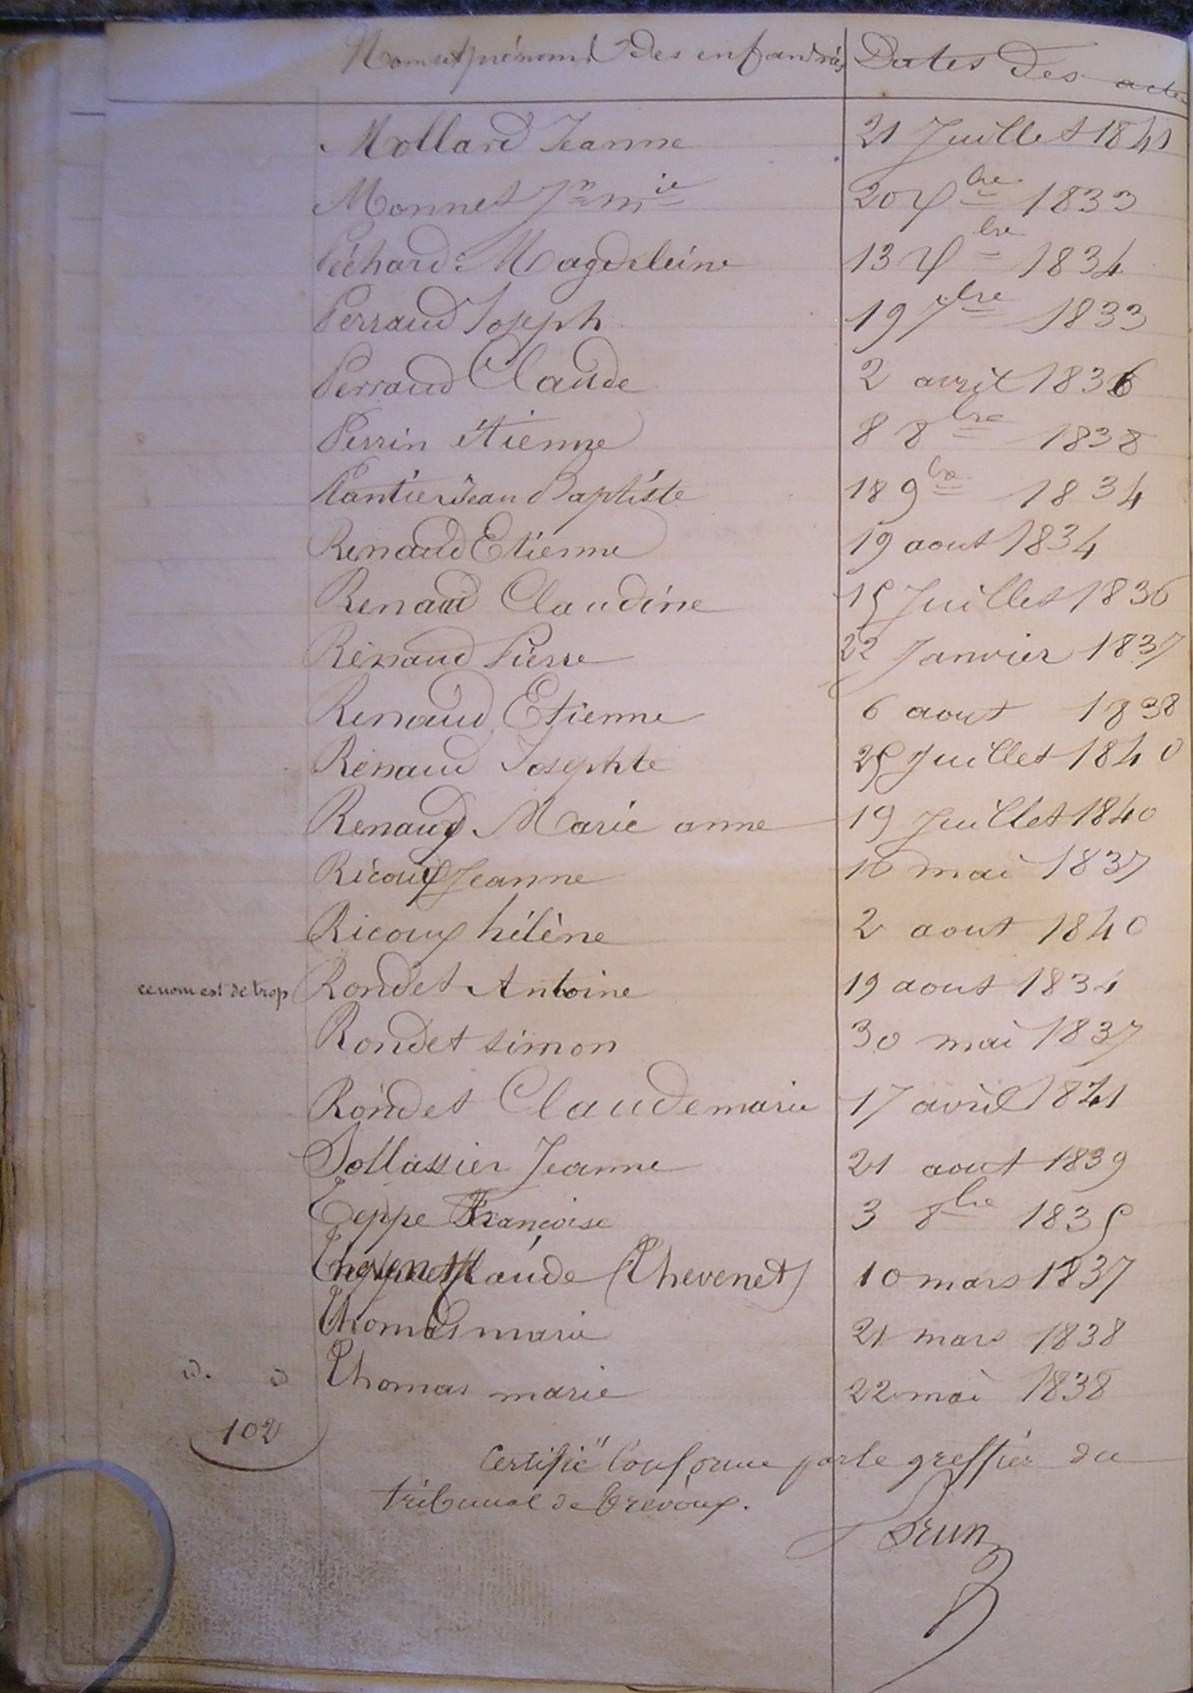 Nom et prénoms des enfans Dates des actes
Mollard Jeanne 21 Juillet 1841
Monnet Jn mie 20 Xbre 1833
Péchard Magdeleine 13 Xbre 1834
Perraud Joseph 19 7bre 1833
Perraud Claude 2 avril 1836
Perrin étienne 8 8bre 1838
Plantier Jean Baptiste 18 9bre 1834
Renaud Etienne 19 aout 1834
Renaud Claudine 15 Juillet 1836
Renaud Pierre 22 Janvier 1837
Renaud Etienne 6 aout 1838
Renaud Josephte 25 Juillet 1840
Renaud Marie anne 19 Juillet 1840
Ricoux Jeanne 16 mai 1837
Ricoux hélène 2 aout 1840
ce nom est de trop Rondet Antoine 19 aout 1834
Rondet simon 30 mai 1837
Rondet Claude marie 17 avril 1841
Sollassier Jeanne 21 aout 1839
Teppe Françoise 3 8bre 1835
Claude (Thevenet) 10 mars 1837
Thomas marie 21 mars 1838
Thomas marie 22 mai 1838
102
Certifié Conforme par le greffier du
tribunal de Trévoux.